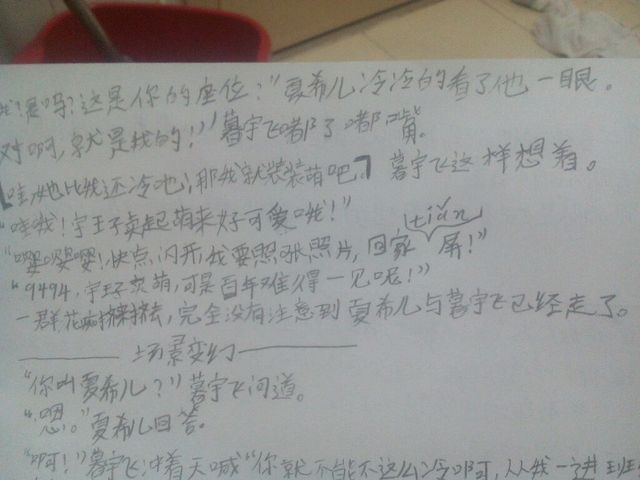 是吗?这是你的座位?"夏希儿冷冷的看了他一眼。
对啊,就是我的!"暮宇飞嘟了嘟嘴。
『哇,她比我还冷吔,那我就装装萌吧。』暮宇飞这样想着。
"哇哦!宇王子卖起萌来好可爱哦!"
"嘤嘤嘤!快点闪开,我要照张照片,回家(tiǎn)屏!"
"9494,宇王子卖萌,可是百年难得一见呢!"
一群花痴挤来挤去,完全没有注意到夏希儿与暮宇飞已经走了。
———— 场景变幻 ————
"你叫夏希儿?"暮宇飞问道。
"嗯。"夏希儿回答。
"啊!"暮宇飞冲着天喊"你就不能不这么冷啊,从我一进班